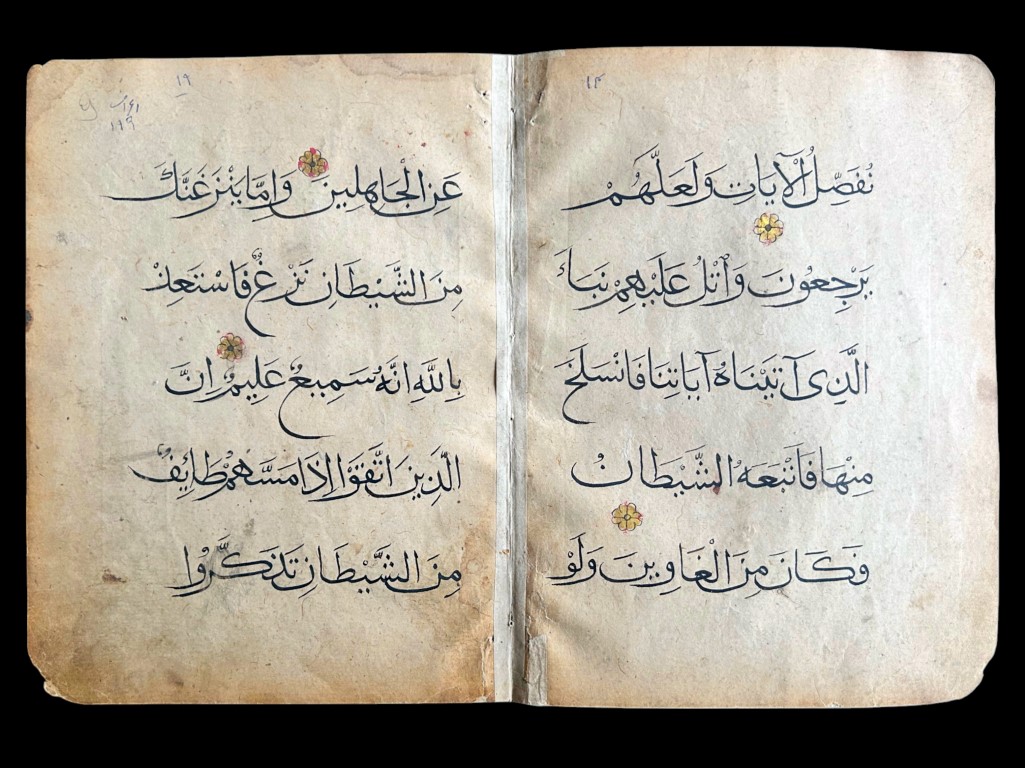 ١٤
نُفَصِّلُ الْآيَاتِ وَلَعَلَّهُمْ
يَرْجِعُونَ وَاتْلُ عَلَيْهِمْ نَبَاَ
الَّذِى آتَيْنَاهُ آيَاتِنَا فَانْسَلَخَ
مِنْهَا فَاَتْبَعَهُ الشَّيْطَانُ
فَكَانَ مِنَ الْغَاوِينَ وَلَوْ
١٩
١١٩
عَنِ الْجَاهِلِينَ وَاِمَّا يَنْزَغَنَّكَ
مِنَ الشَّيْطَانِ نَزْغٌ فَاسْتَعِذْ
بِاللّٰهِ اِنَّهُ سَمِيعٌ عَلِيمٌ اِنَّ
الَّذِينَ اتَّقَوْا اِذَا مَسَّهُمْ طَائِفٌ
مِنَ الشَّيْطَانِ تَذَكَّرُوا